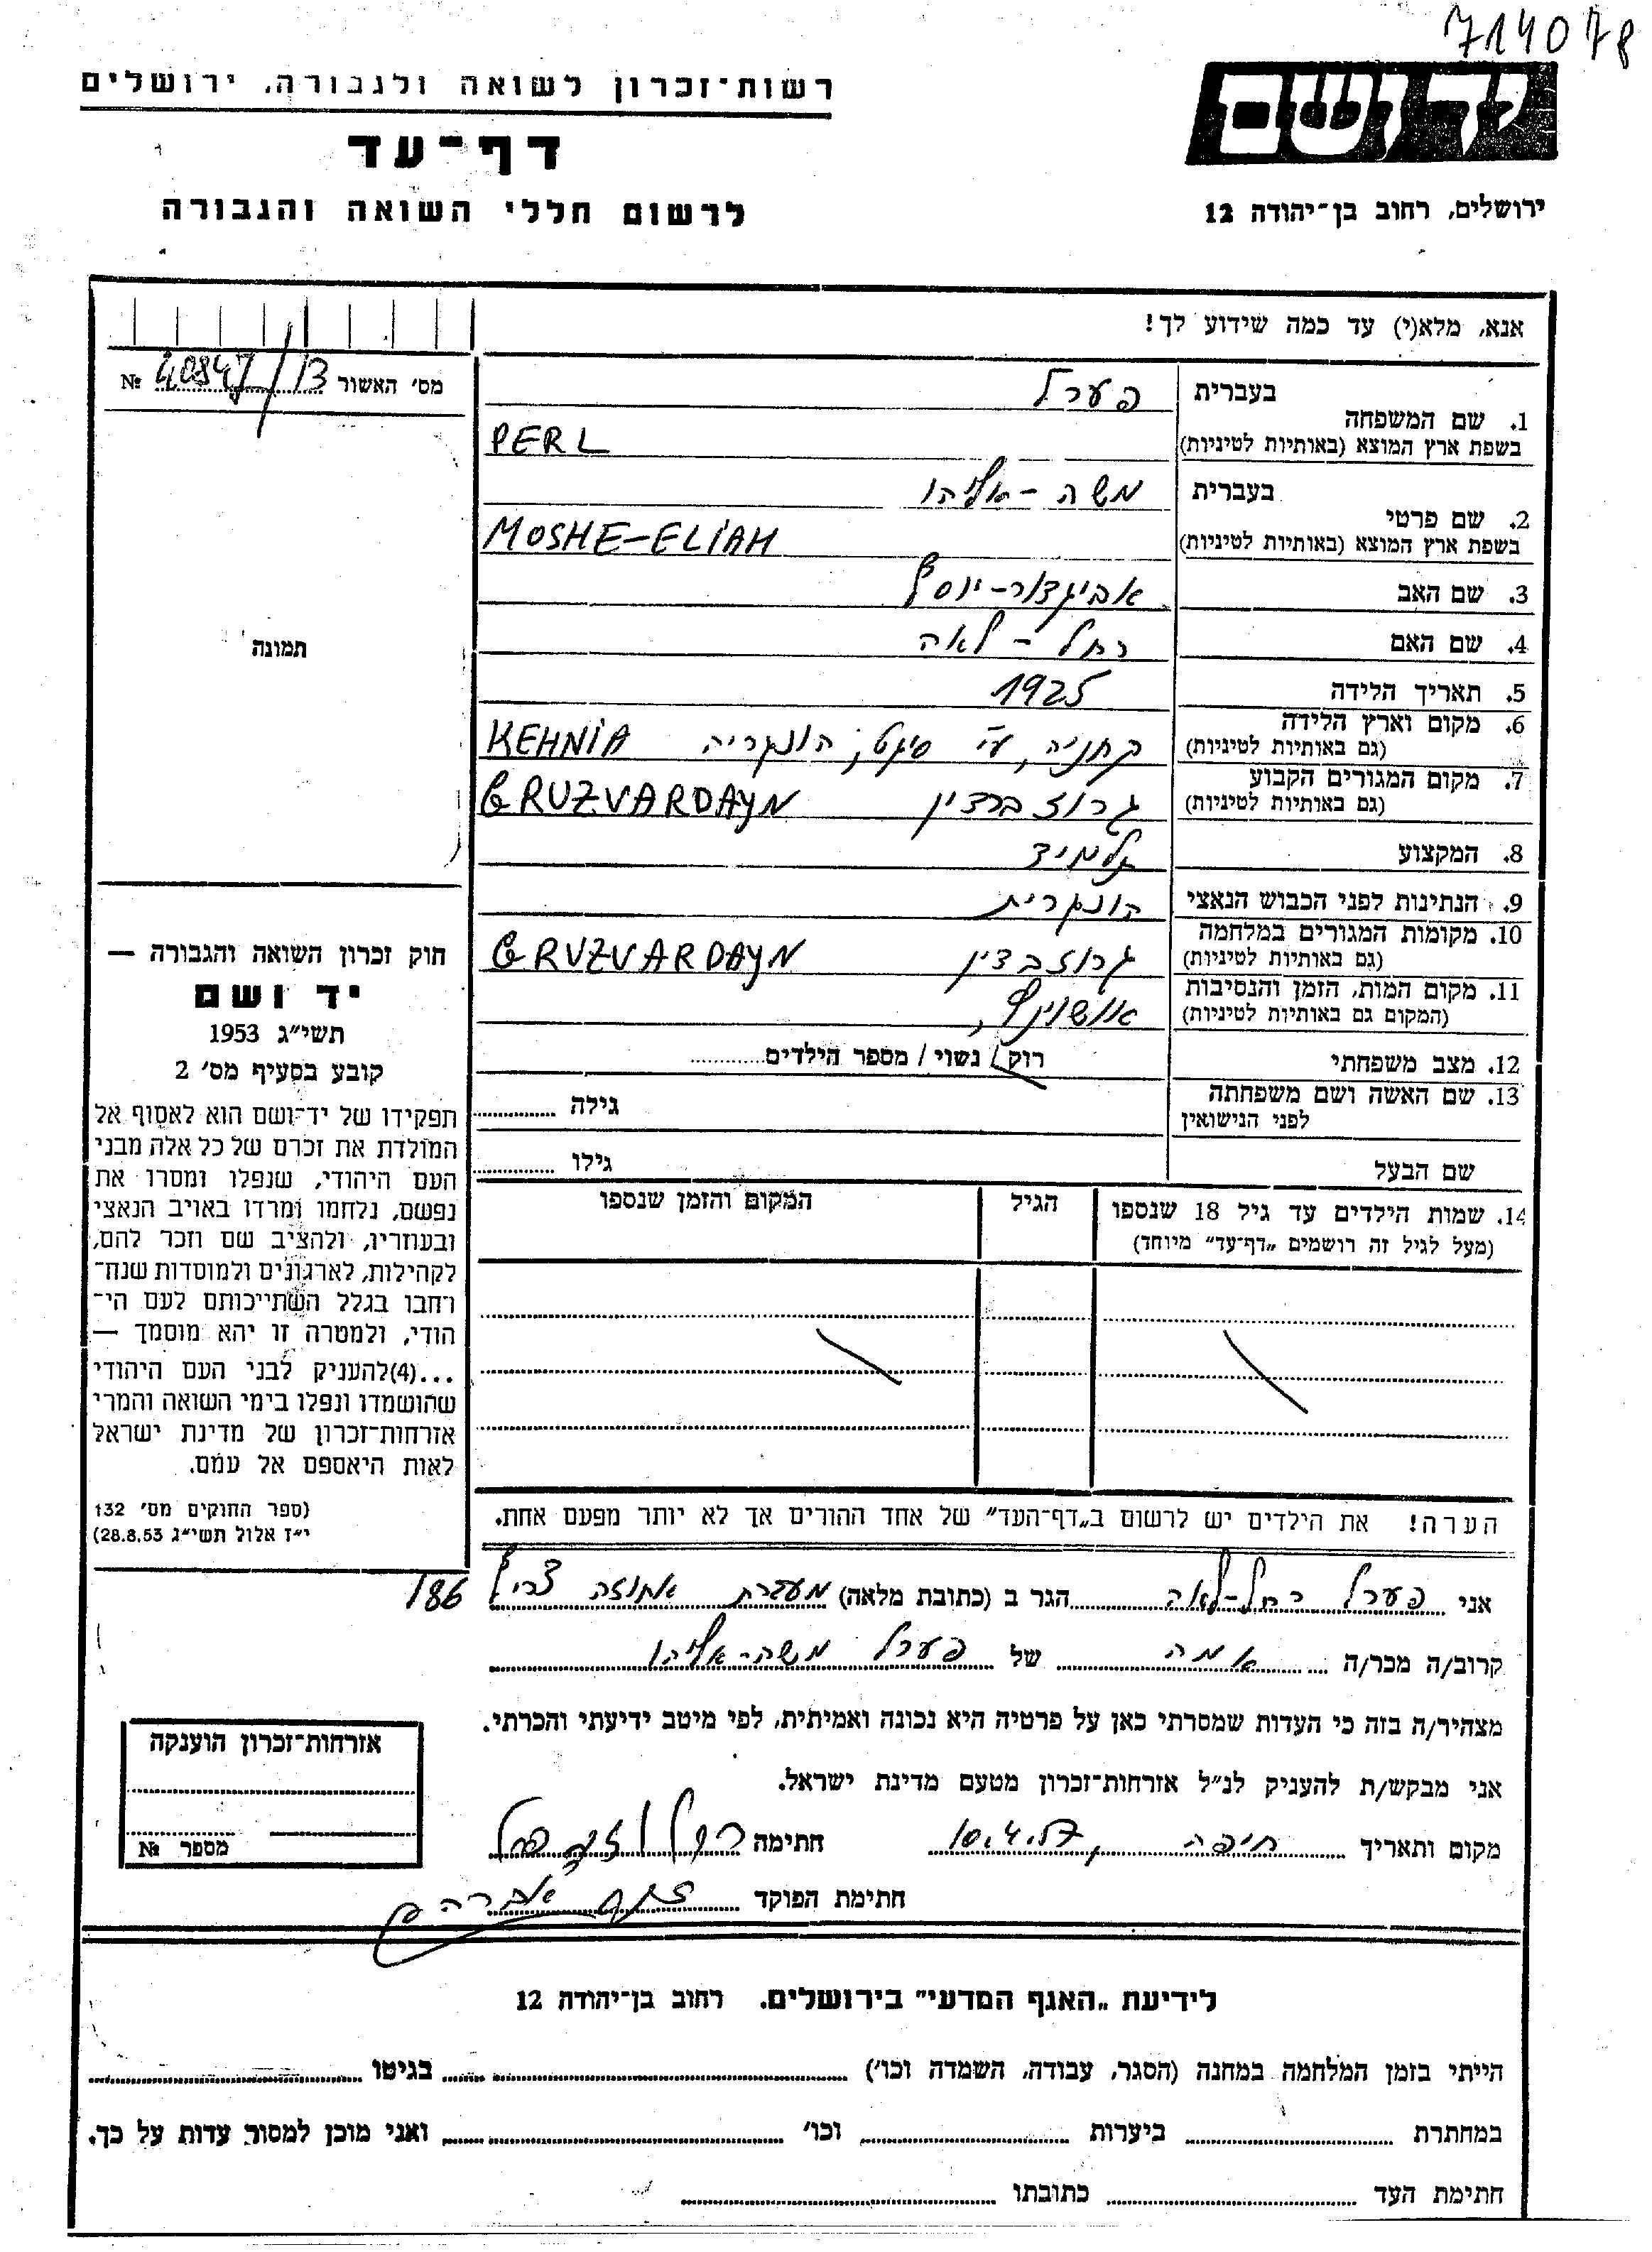 714078
רשות־זכרון לשואה ולגבורה, ירושלים
יד ושם
דף־עד
לרשום חללי השואה והגבורה
ירושלים, רחוב בן־יהודה 12
אנא, מלא(י) עד כמה שידוע לך!
מס׳ האשור 13/40847 №
תמונה
1. שם המשפחה
בעברית פערל
בשפת ארץ המוצא (באותיות לטיניות) PERL
2. שם פרטי
בעברית משה - אליהו
בשפת ארץ המוצא (באותיות לטיניות) MOSHE-ELIAH
3. שם האב אביגדור-יוסף
4. שם האם רחל - לאה
5. תאריך הלידה 1925
6. מקום וארץ הלידה
(גם באותיות לטיניות) קחניה, ע״י סיגט, הונגריה KEHNIA
7. מקום המגורים הקבוע
(גם באותיות לטיניות) גרוזברדין GRUZVARDAYN
8. המקצוע תלמיד
9. הנתינות לפני הכבוש הנאצי הונגרית
10. מקומות המגורים במלחמה
(גם באותיות לטיניות) גרוזבדין GRUZVARDAYN
11. מקום המות, הזמן והנסיבות
(המקום גם באותיות לטיניות) אושויץ,
12. מצב משפחתי רוק / נשוי / מספר הילדים
13. שם האשה ושם משפחתה
לפני הנישואין גילה
שם הבעל גילו
14. שמות הילדים עד גיל 18 שנספו
(מעל לגיל זה רושמים „דף־עד” מיוחד)
הגיל
המקום והזמן שנספו
הערה! את הילדים יש לרשום ב„דף־העד” של אחד ההורים אך לא יותר מפעם אחת.
חוק זכרון השואה והגבורה —
יד ושם
תשי״ג 1953
קובע בסעיף מס׳ 2
תפקידו של יד־ושם הוא לאסוף אל
המולדת את זכרם של כל אלה מבני
העם היהודי, שנפלו ומסרו את
נפשם, נלחמו ומרדו באויב הנאצי
ובעוזריו, ולהציב שם וזכר להם,
לקהילות, לארגונים ולמוסדות שנח־
רחבו בגלל השתייכותם לעם הי־
הודי, ולמטרה זו יהא מוסמך —
...(4)להעניק לבני העם היהודי
שהושמדו ונפלו בימי השואה והמרי
אזרחות־זכרון של מדינת ישראל
לאות היאספם אל עמם.
(ספר החוקים מס׳ 132
י״ז אלול תשי״ג 28.8.53)
אני פערל רחל-לאה הגר ב (כתובת מלאה) מעברת אחוזה צריף 186
קרוב/ה מכר/ה אמה של פערל משה-אליהו
מצהיר/ה בזה כי העדות שמסרתי כאן על פרטיה היא נכונה ואמיתית, לפי מיטב ידיעתי והכרתי.
אני מבקש/ת להעניק לנ״ל אזרחות־זכרון מטעם מדינת ישראל.
מקום ותאריך חיפה, 10.4.57 חתימה
חתימת הפוקד
אזרחות־זכרון הוענקה
מספר №
לידיעת „האגף המדעי” בירושלים, רחוב בן־יהודה 12
הייתי בזמן המלחמה במחנה (הסגר, עבודה, השמדה וכו׳) בגיטו
במחתרת ביערות וכו׳ ואני מוכן למסור עדות על כך.
חתימת העד כתובתו